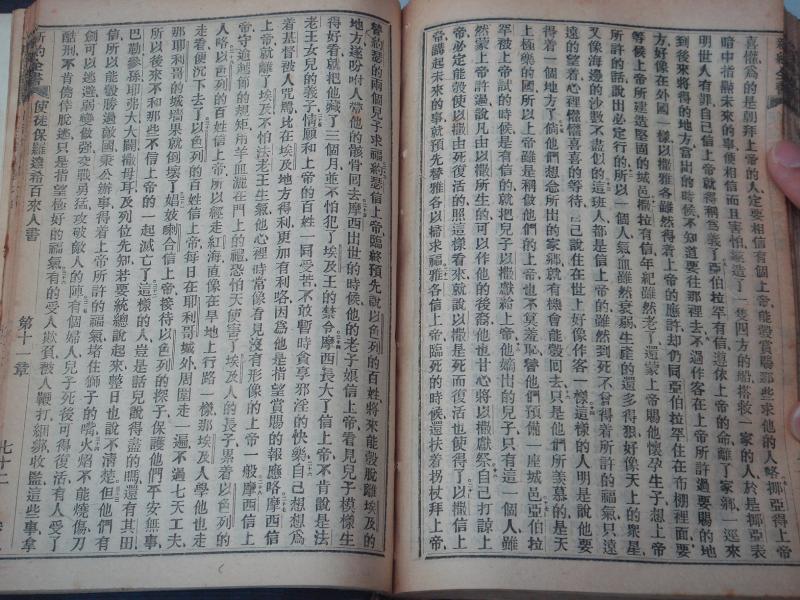 新約全書
喜懽爲的是朝拜上帝的人定要相信有個上帝能彀賞賜那些求他的人咯挪亞得上帝
暗中指點未來的事便相信而且害怕就造了一隻四方的船搭救一家的人於是挪亞表
明世人有罪自己信上帝就得稱爲義了亞伯拉罕有信遵依上帝的命離了家鄉一逕來
到後來將得的地方當出的時候不知道要往那裡去不過作客在上帝所許過要賜的地
方好像在外國一樣以撒雅各雖然得着上帝的應許却仍同亞伯拉罕住在布棚裡面要
等候上帝所建造堅固的城邑撒拉有信年紀雖然老了還蒙上帝賜他懷孕生子想上帝
所許的話說出必定行的所以一個人氣血雖然衰弱生產的還多得狠好像天上的衆星
又像海邊的沙數不盡似的這班人都是信上帝的雖然到死不曾得着所許的福氣只遠
遠的望着心裡懽懽喜喜的等待自己說住在世上好像作客一樣這樣的人明是說他要
尋着一個地方了倘他們想念所出的家鄉就有機會能彀回去只是他們所羨慕的是天
上極樂的國所以上帝雖是稱做他們的上帝也不莫羞恥替他們預備一座城邑亞伯拉
罕被上帝試的時候是有信的就把兒子以撒獻給上帝他嫡出的兒子只有這一個人雖
然蒙上帝許過說凡由以撒所生的可以作他的後裔他也甘心將以撒獻祭自己打諒上
帝必定能彀使以撒由死復活的照這樣看來就說以撒死而復活也使得了以撒信上
帝講起未來的事就預先替雅各以掃求福雅各信上帝臨死的時候還扶着拐杖拜上帝
替約瑟的兩個兒子求福約瑟信上帝臨終預先說以色列的百姓將來能彀脫離埃及的
地方遂吩咐人帶他的骸骨回去摩西出世的時候他的老子娘信上帝看見兒子模樣生
得好看就把他藏了三個月並不怕犯了埃及王的禁令摩西長大了信上帝不肯說是法
老王女兒的義子情願和上帝的百姓一同受苦不敢暫時貪享邪淫的快樂自己想想爲
着基督被人咒罵比在埃及地方得利更加有利咯因爲他是指望賞賜的報應咯摩西信
上帝就離了埃及不怕法老王生氣他心裡時常像看見沒有形像的上帝一般摩西信上
帝守逾越節的規矩用羊血灑在門上的禮恐怕天使害了埃及人的長子累着以色列的
人咯以色列的百姓信上帝所以經走紅海直像在旱地上行路一樣那埃及人學他也走
走看便沉下去了以色列的百姓信上帝每日在耶利哥城外周圍走一遍不過七天工夫
那耶利哥的城墻果就倒壞了娼妓喇合信上帝接待以色列的探子保護他們平安無事
所以後來不和那些不信上帝的一起滅亡了這樣的人豈是話兒說得盡的嗎還有其田
巴勒參孫耶弗大大闢撒母耳及列位先知若要統總說起來整日也說不清楚但他們有
信所以能彀勝過敵國秉公辦事得着上帝所許的福氣堵住獅子的嘴火焰不能燒傷刀
劍可以逃避弱變做强交戰勇猛攻破敵人的陣有個婦人兒子死後可得復活有人受了
酷刑不肯僥倖脫逃只是指望極好的福氣有的受人欺負被人鞭打綑綁收監這些事拿
新約全書
使徒保羅達希百來人書
第十一章
七十二